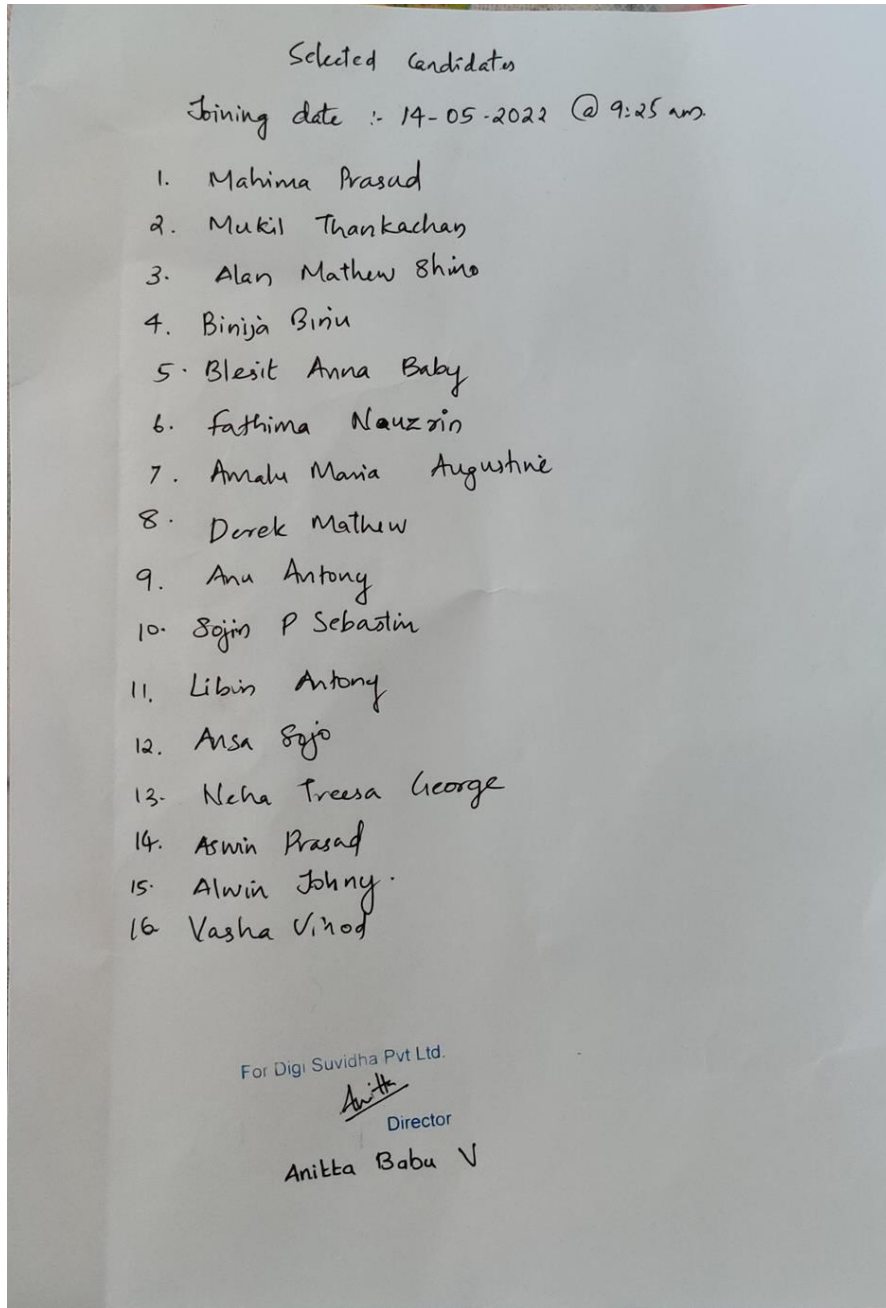 Selected Candidates
Joining date :- 14-05-2022 @ 9:25 am.
1. Mahima Prasad
2. Mukil Thankachan
3. Alan Mathew Shino
4. Binija Binu
5. Blesit Anna Baby
6. Fathima Nauzrin
7. Amalu Maria Augustine
8. Derek Mathew
9. Anu Antony
10. Sojin P Sebastin
11. Libin Antony
12. Ansa Sojo
13. Neha Treesa George
14. Aswin Prasad
15. Alwin Johny.
16 Vasha Vinod
For Digi Suvidha Pvt Ltd.
Anitta
Director
Anitta Babu V